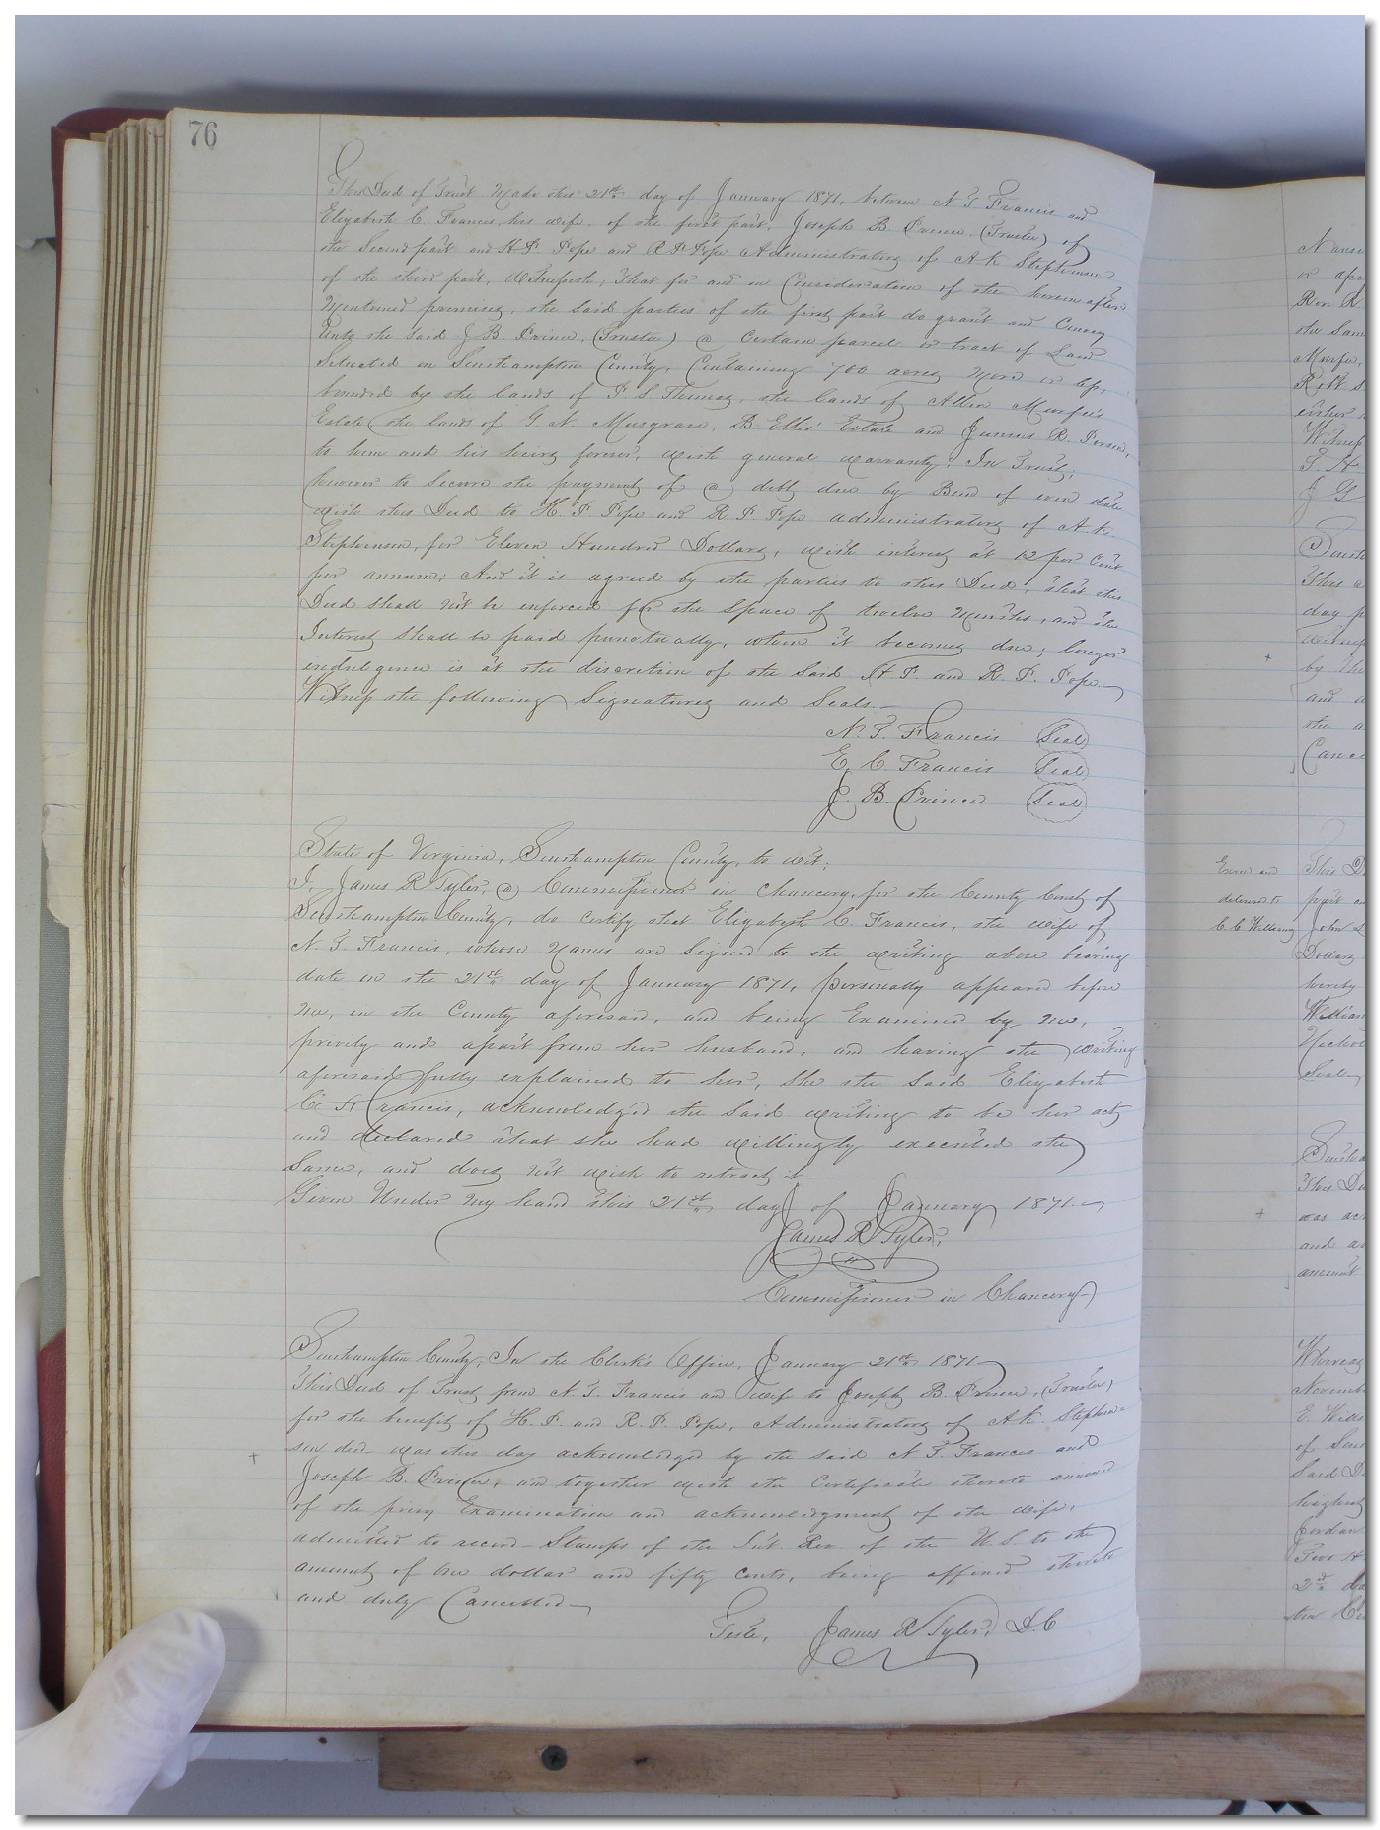 76
This Deed of Trust Made this 21st day of January 1871, between N. T. Francis and
Elizabeth C. Francis, his wife of the first part, Joseph B. Prince, (Trustee) of
the Second part and H. P. Pope and R. P. Pope Administrators of A. K. Stephenson
of the third part, Witnesseth; That for and in Consideration of the herein after
Mentioned premises, the Said parties of the first part do grant and Convey
Unto the Said J. B. Prince, (Trustee) a Certain parcel or tract of Land
Situated in Southampton County, Containing 700 acres More or less,
bounded by the lands of the lands of Allen Murfee's
Estate, the lands of G. N. Musgrave, B. Ellis' Estate and Junius R.
to him and his heirs forever, with general warranty; In Trust,
however to Secure the payment of a debt due by Bond of even date
with this Deed to H. P. Pope and R. P. Pope administrators of A. K.
Stephenson, for Eleven Hundred Dollars, with interest at 12 per Cent
per annum; And it is agreed by the parties to this Deed, that this
Deed Shall not be enforced for the Space of twelve Months, and the
Interest Shall be paid punctually, when it becomes due; longer
indulgence is at the discretion of the Said H. P. and R. P. Pope.
Witness the following Signatures and Seals.
N. T. Francis (Seal)
E. C. Francis (Seal)
J. B. Prince (Seal)
State of Virginia, Southampton County, to wit:
I, James R. Tyler, a Commissioner in Chancery, for the County Court of
Southampton County, do certify that Elizabeth C. Francis, the wife of
N. T. Francis, whose Names are Signed to the writing above bearing
date on the 21st day of January 1871, personally appeared before
me, in the County aforesaid, and being Examined by me,
privily and apart from her husband, and having the writing
aforesaid fully explained to her, She the Said Elizabeth
C. Francis, acknowledged the Said writing to be her act,
and declared that she had willingly executed the
Same, and does not wish to retract it.
Given Under my hand this 21st day of January 1871.
James R. Tyler,
Commissioner in Chancery
Southampton County, In the Clerk's Office, January 21st 1871
This Deed of Trust from N. T. Francis and Wife to Joseph B. Prince, (Trustee)
for the benefit of H. P. and R. P. Pope, Administrators of A. K. Stephen=
son decd. was this day acknowledged by the said N. T. Francis and
+ Joseph B. Prince, and together with the Certificate thereto annexed
of the privy Examination and acknowledgment of the wife,
admitted to record - Stamps of the Int. Rev. of the U. S. to the
amount of one dollar and fifty cents, being affixed thereto
and duly Cancelled
Teste, James R. Tyler, D. C
Rev. R.
the Sam
either
S. H
J G
This a
day p
by the
+
and a
the a
Exd and This D
delivered to part an
C. C. Williams John
hereby
William
was ac
+
and a
amount
Whereas
Novemb
E. Wills
Said D
Jordan
2nd da